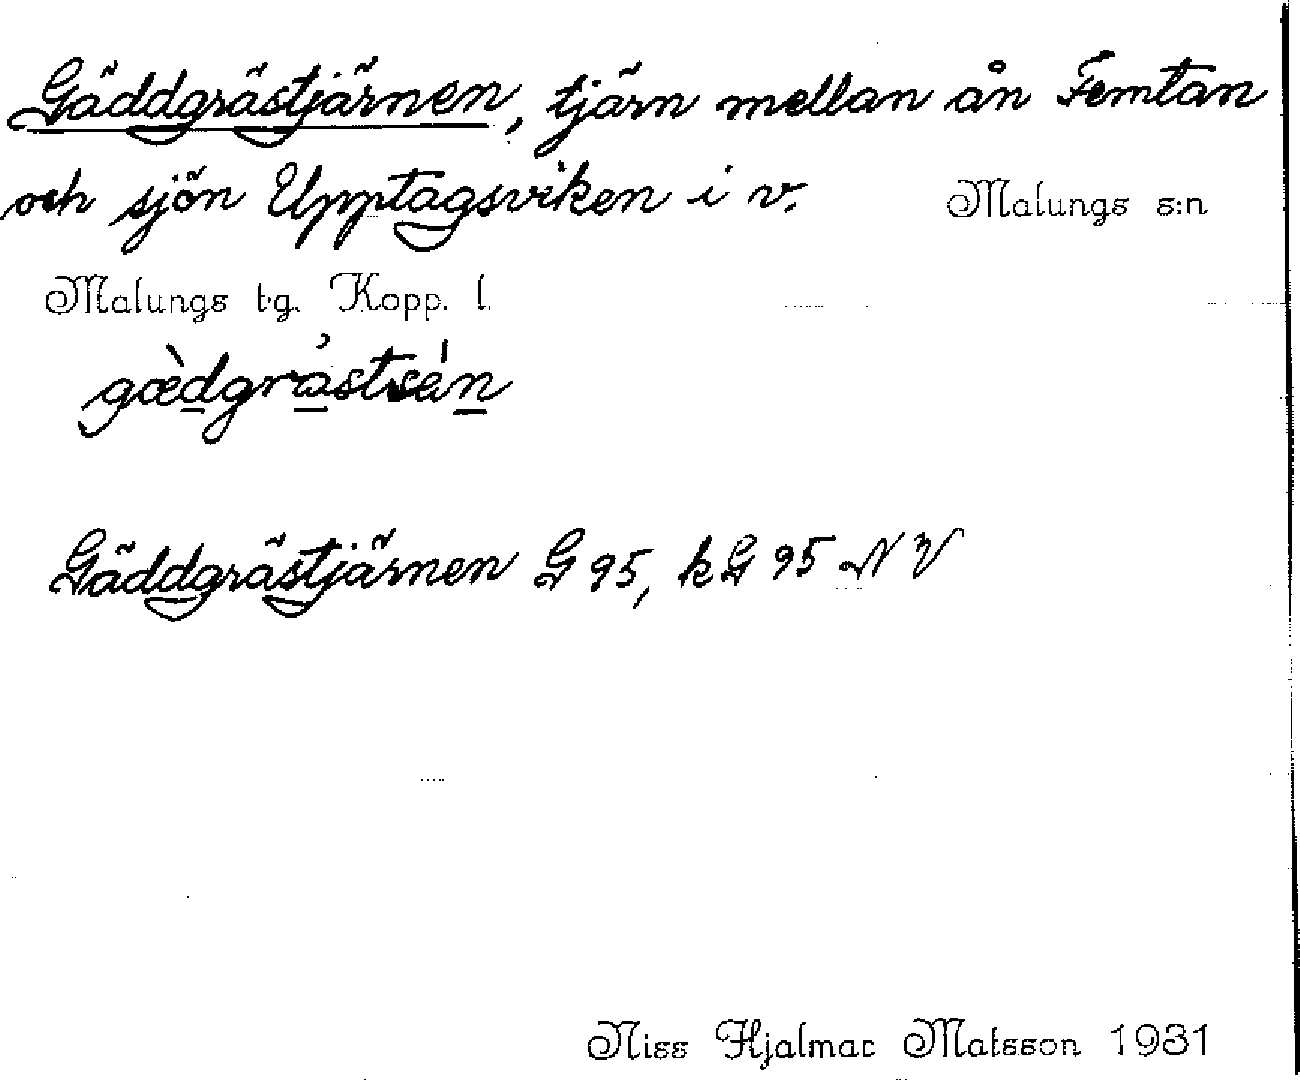 Gäddgrästjärnen, tjärn mellan ån Femtan
och sjön Upptagsviken i v. Malungs s:n
Malungs tg. Kopp. l.
Gäddgrästjärnen G 95, kG 95 NV
Niss Hjalmar Matsson 1931